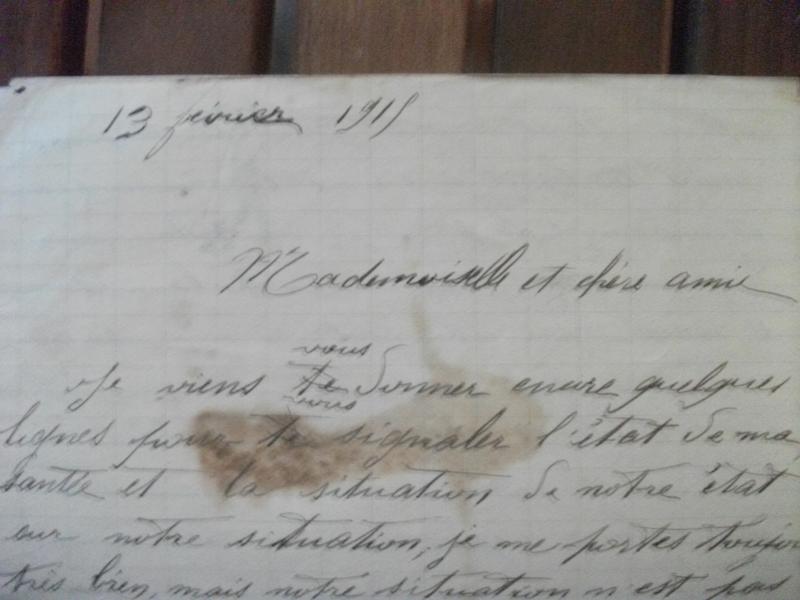 13 février 1915
Mademoiselle et chère amie
vous
Je viens te donner encore quelques
vous
lignes pour te signaler l'état de ma
santé et la situation de notre état
sur notre situation, je me portes toujour
très bien, mais notre situation n'est pas